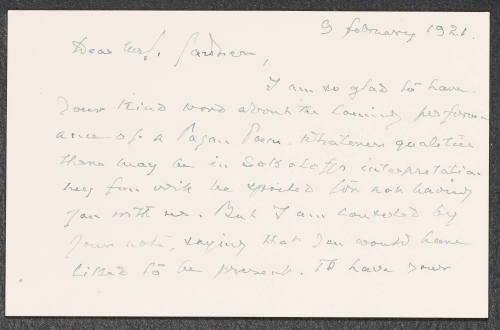 9 February 1921.
Dear Mrs. Gardner,
I am so glad to have
your kind word about the coming perform
ance of a Pagan Poem. Whatever qualities
there may be in Sokoloff's interpretation
my fun will be spoiled for not having
you with us. But I am consoled by
your note, saying that you would have
liked to be present. To have your